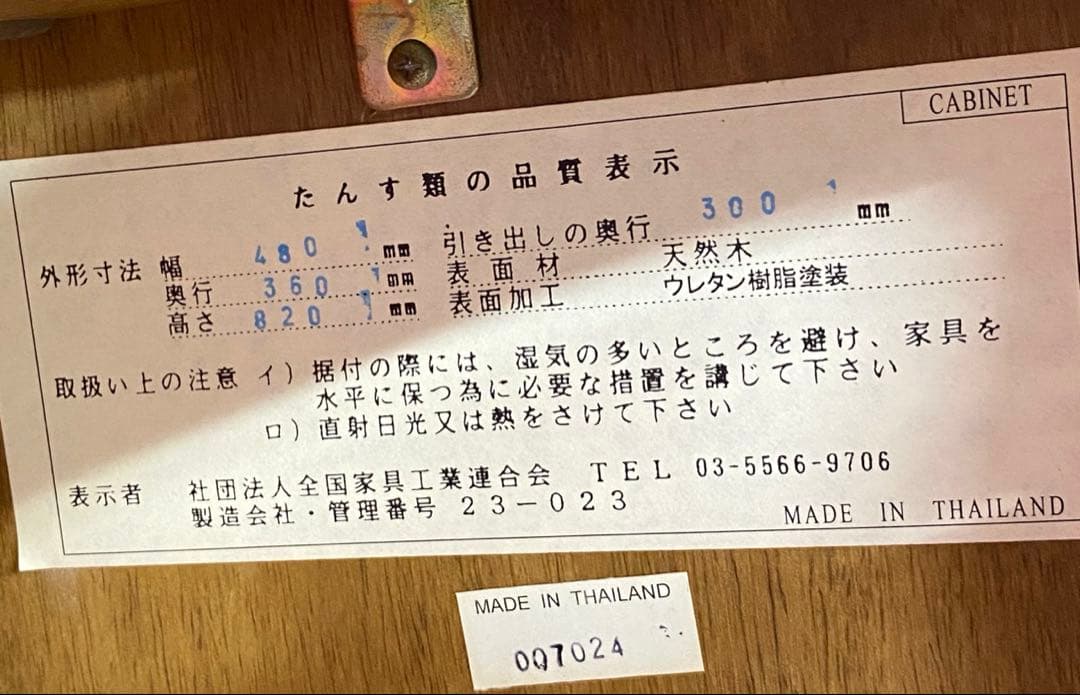 CABINET
たんす類の品質表示
外形寸法 幅 480 mm
奥行 360 mm
高さ 820 mm
引き出しの奥行 300 mm
表面材 天然木
表面加工 ウレタン樹脂塗装
取扱い上の注意 イ）据付の際には、湿気の多いところを避け、家具を
水平に保つ為に必要な措置を講じて下さい
ロ）直射日光又は熱をさけて下さい
表示者 社団法人全国家具工業連合会 TEL 03-5566-9706
製造会社・管理番号 23－023
MADE IN THAILAND
MADE IN THAILAND
007024